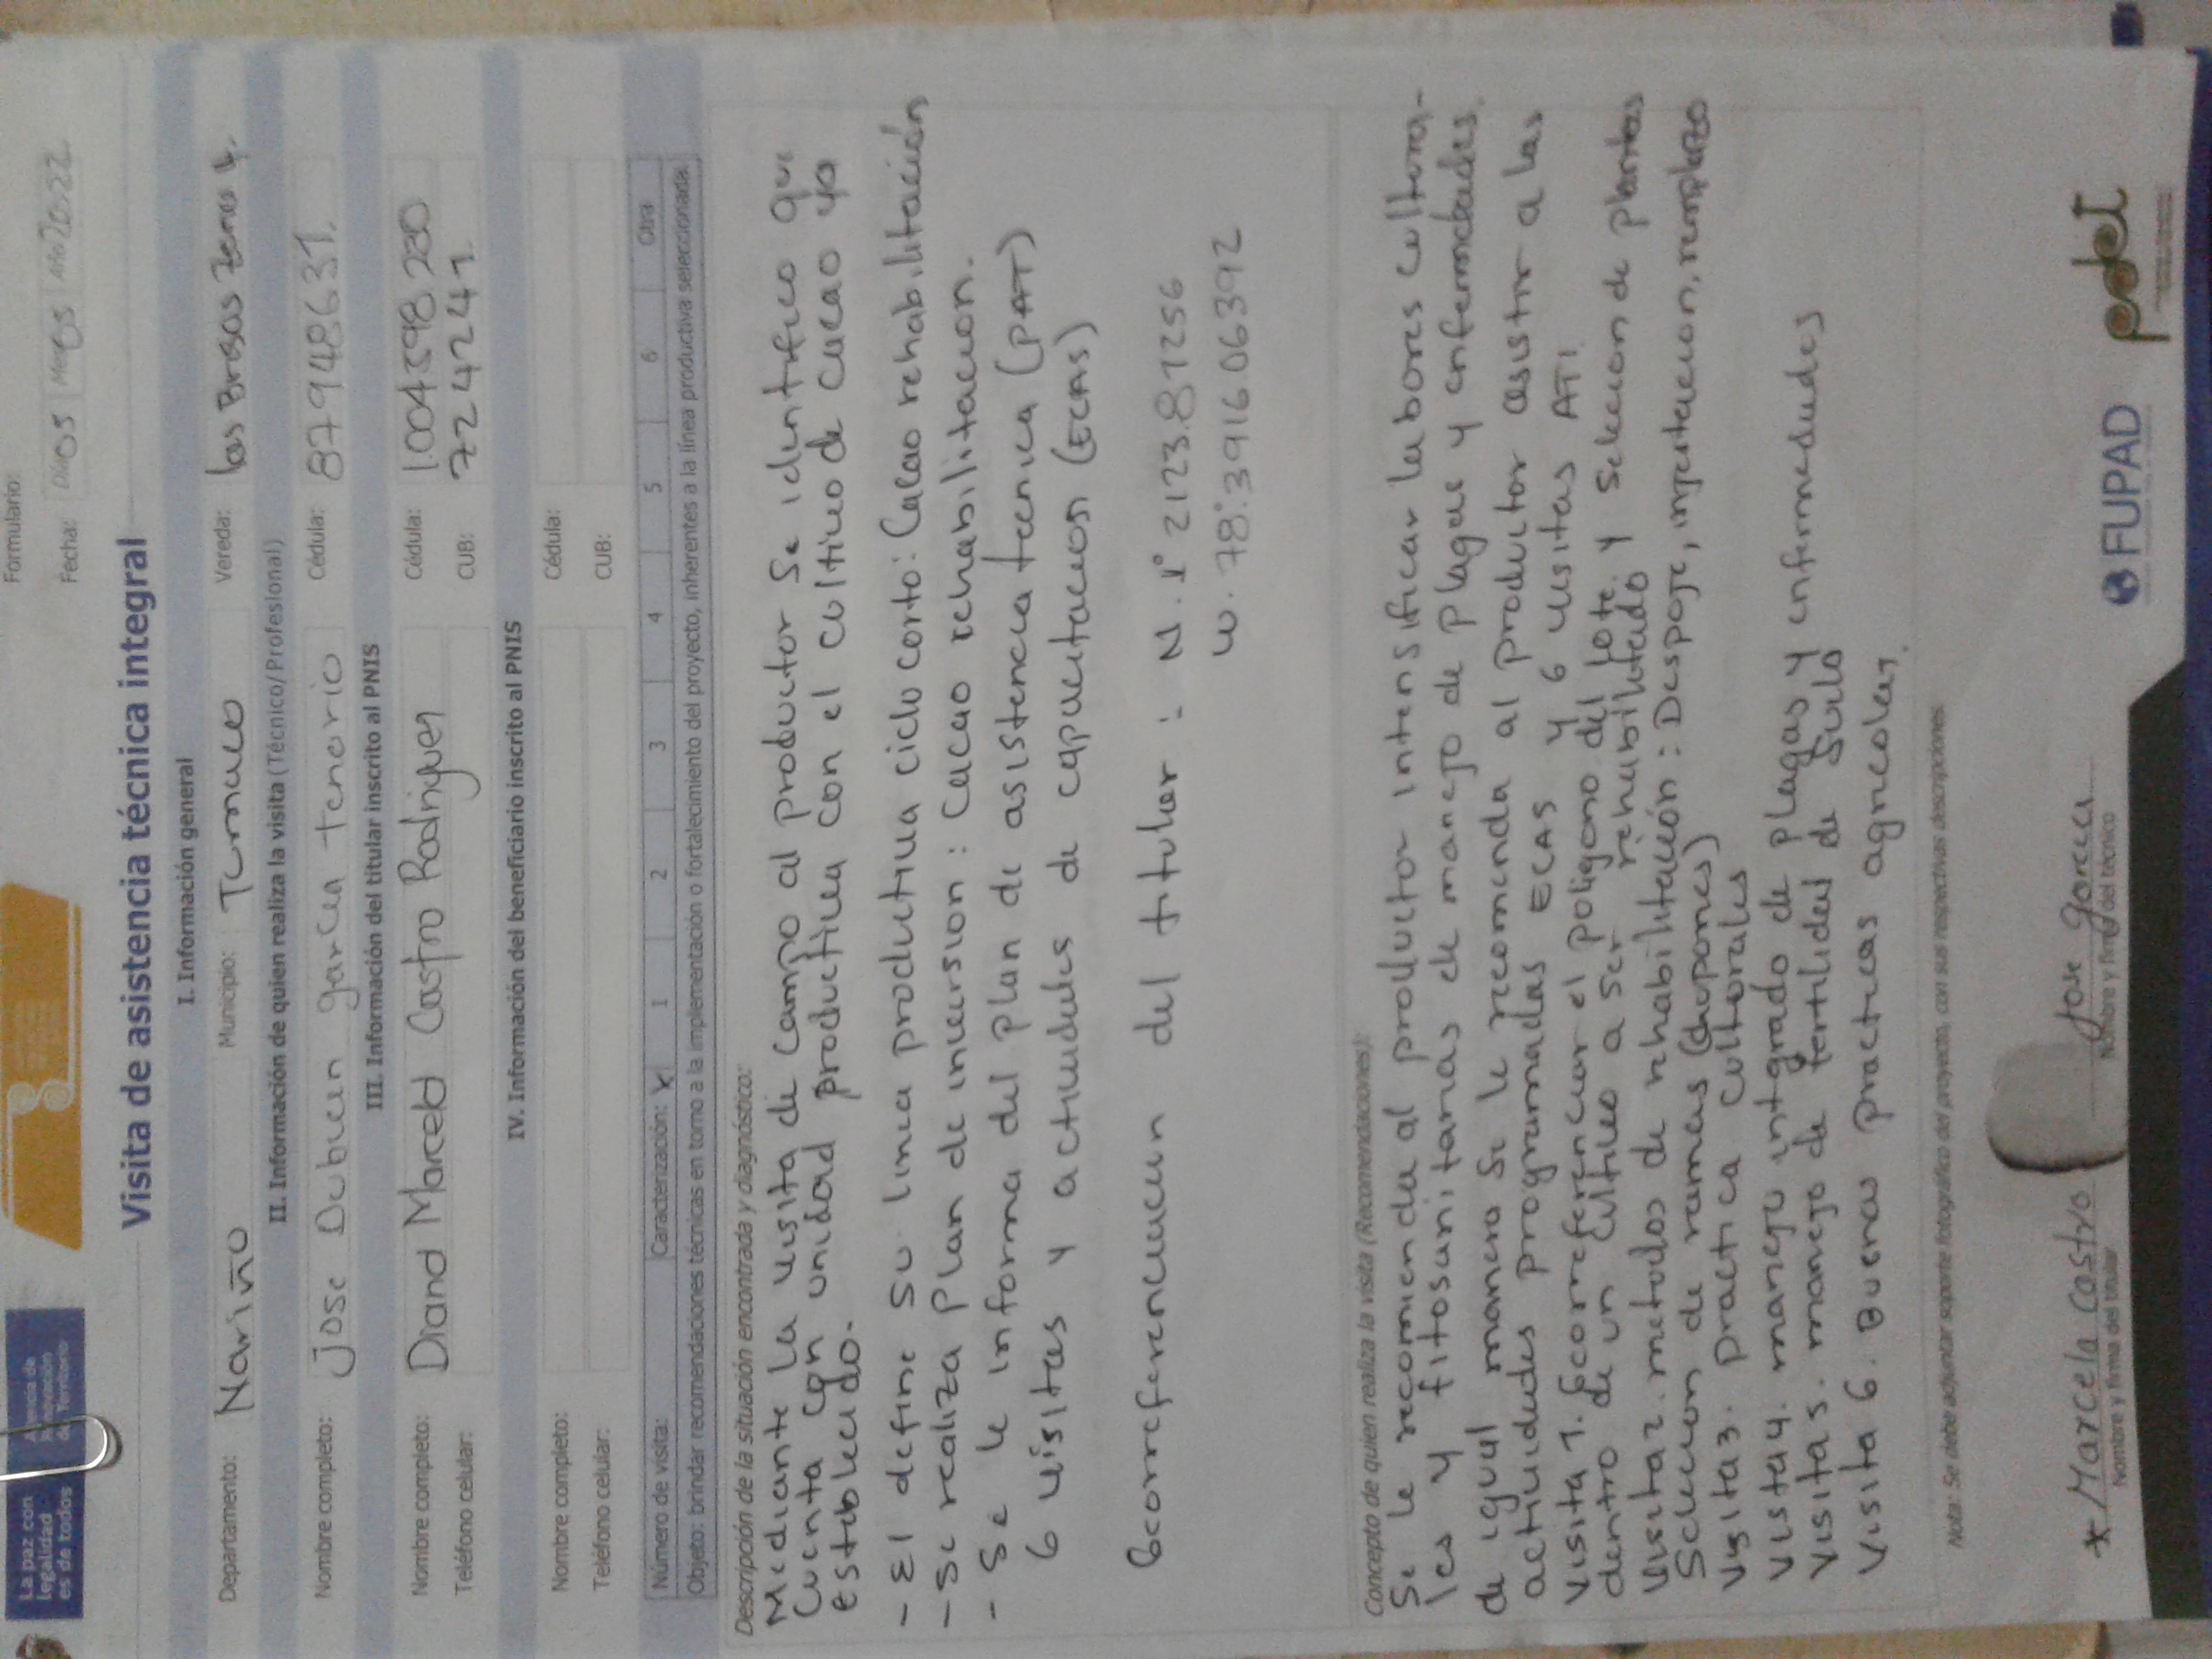 La paz con
legalidad
es de todos
Agencia de
Renovación
del Territorio
Formulario:
Fecha: Día 05 Mes 05 Año 2022
Visita de asistencia técnica integral
I. Información general
Departamento: Nariño Municipio: Tumaco Vereda: las Brisas Zona 4.
II. Información de quien realiza la visita (Técnico/Profesional)
Nombre completo: Jose Dubuen garcia tenorio Cédula: 87948631.
III. Información del titular inscrito al PNIS
Nombre completo: Diana Marcela Castro Rodriguez Cédula: 1.004598230
Teléfono celular: CUB: 724241.
IV. Información del beneficiario inscrito al PNIS
Nombre completo: Cédula:
Teléfono celular: CUB:
Número de visita: Caracterización: X 1 2 3 4 5 6 Otra
Objeto: brindar recomendaciones técnicas en torno a la implementación o fortalecimiento del proyecto, inherentes a la línea productiva seleccionada.
Descripción de la situación encontrada y diagnóstico:
Mediante la visita de campo al productor se identifico que
cuenta con unidad productiva con el cultivo de cacao ya
establecido.
- El define su linea productiva ciclo corto: Cacao rehabilitación
- Se realiza Plan de inversion: cacao rehabilitacion.
- Se le informa del plan de asistencia tecnica (PAT)
6 visitas y actividades de capacitacion (ECAS)
Georreferenciacion del titular: N. 1° 2123.81256
W. 78°.391606392
Concepto de quien realiza la visita (Recomendaciones):
Se le recomienda al productor intensificar labores cultura-
les y fitosanitarias de manejo de plagas y enfermedades.
de igual manera se le recomienda al productor asistir a las
actividades programadas ECAS y 6 visitas ATI
Visita 1. Georreferenciar el poligono del lote. y seleccion de plantas
dentro de un cultivo a ser rehabilitado
Visita 2. metodos de rehabilitación: Despoje, injertacion, remplazo
Seleccion de ramas (chupones)
Visita 3. practica culturales
Visita 4. manejo integrado de plagas y enfermedades
Visita 5. manejo de fertilidad de suelo
Visita 6. Buenas practicas agricolas.
Nota: Se debe adjuntar soporte fotográfico del proyecto, con sus respectivas descripciones
* Marcela Castro
Nombre y firma del titular
Jose garcia
Nombre y firma del técnico
FUPAD
pdet